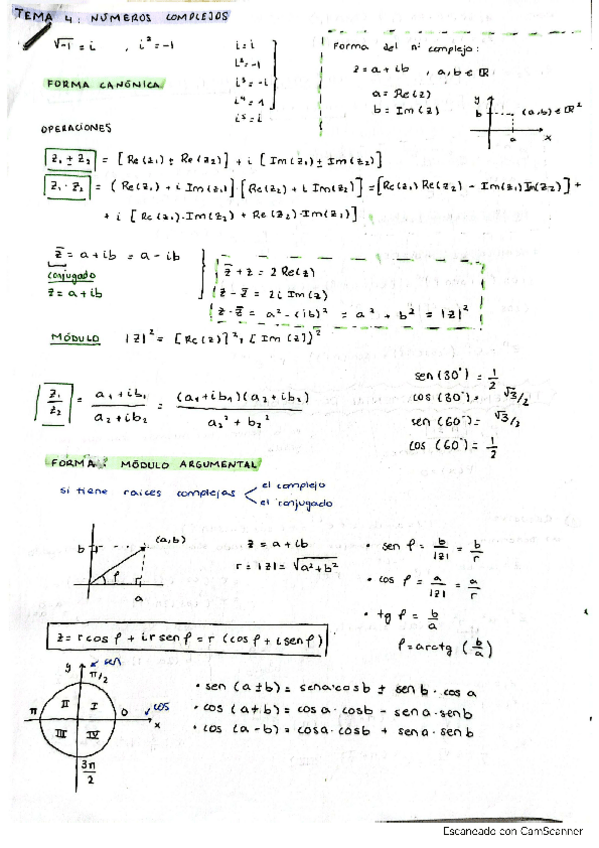 TEMA 4: NÚMEROS COMPLEJOS
√-1 = i , i² = -1
i = i
i² = -1
i³ = -i
i⁴ = 1
i⁵ = i
Forma del nº complejo:
z = a + ib , a, b ∈ ℝ
a = Re(z)
b = Im(z)
y
b
(a,b) ∈ ℝ²
a
x
FORMA CANÓNICA
OPERACIONES
z₁ ± z₂ = [Re(z₁) ± Re(z₂)] + i [Im(z₁) ± Im(z₂)]
z₁ · z₂ = (Re(z₁) + i Im(z₁)] [Re(z₂) + i Im(z₂)] = [Re(z₁) Re(z₂) - Im(z₁) Im(z₂)] +
+ i [Re(z₁)·Im(z₂) + Re(z₂)·Im(z₁)]
z̄ = a + ib = a - ib
conjugado
z = a + ib
z̄ + z = 2 Re(z)
z - z̄ = 2i Im(z)
z · z̄ = a² - (ib)² = a² + b² = |z|²
MÓDULO |z|² = [Re(z)]² + [Im(z)]²
z₁/z₂ = a₁ + ib₁ / a₂ + ib₂ = (a₁ + ib₁)(a₂ + ib₂) / a₂² + b₂²
sen(30°) = 1/2
cos(30°) = √3/2
sen(60°) = √3/2
cos(60°) = 1/2
FORMA: MÓDULO ARGUMENTAL
si tiene raíces complejas
el complejo
el conjugado
b
(a,b)
ρ
a
z = a + ib
r = |z| = √a² + b²
• sen ρ = b/|z| = b/r
• cos ρ = a/|z| = a/r
• tg ρ = b/a
ρ = arctg (b/a)
z = r cos ρ + i r sen ρ = r (cos ρ + i sen ρ)
y
sen
π/2
π
II
I
0
cos
x
III
IV
3π/2
• sen (a ± b) = sen a · cos b ± sen b · cos a
• cos (a + b) = cos a · cos b - sen a · sen b
• cos (a - b) = cos a · cos b + sen a · sen b
Escaneado con CamScanner